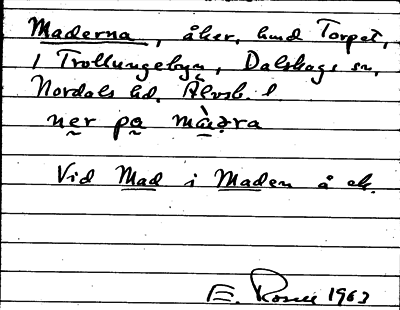 Maderna, åker, hmd Torpet,
1 Trollungebyn, Dalskogs sn,
Nordals hd. Älvsb. l
ner på màəra
Vid Mad i Maden å ek.
E. 1963